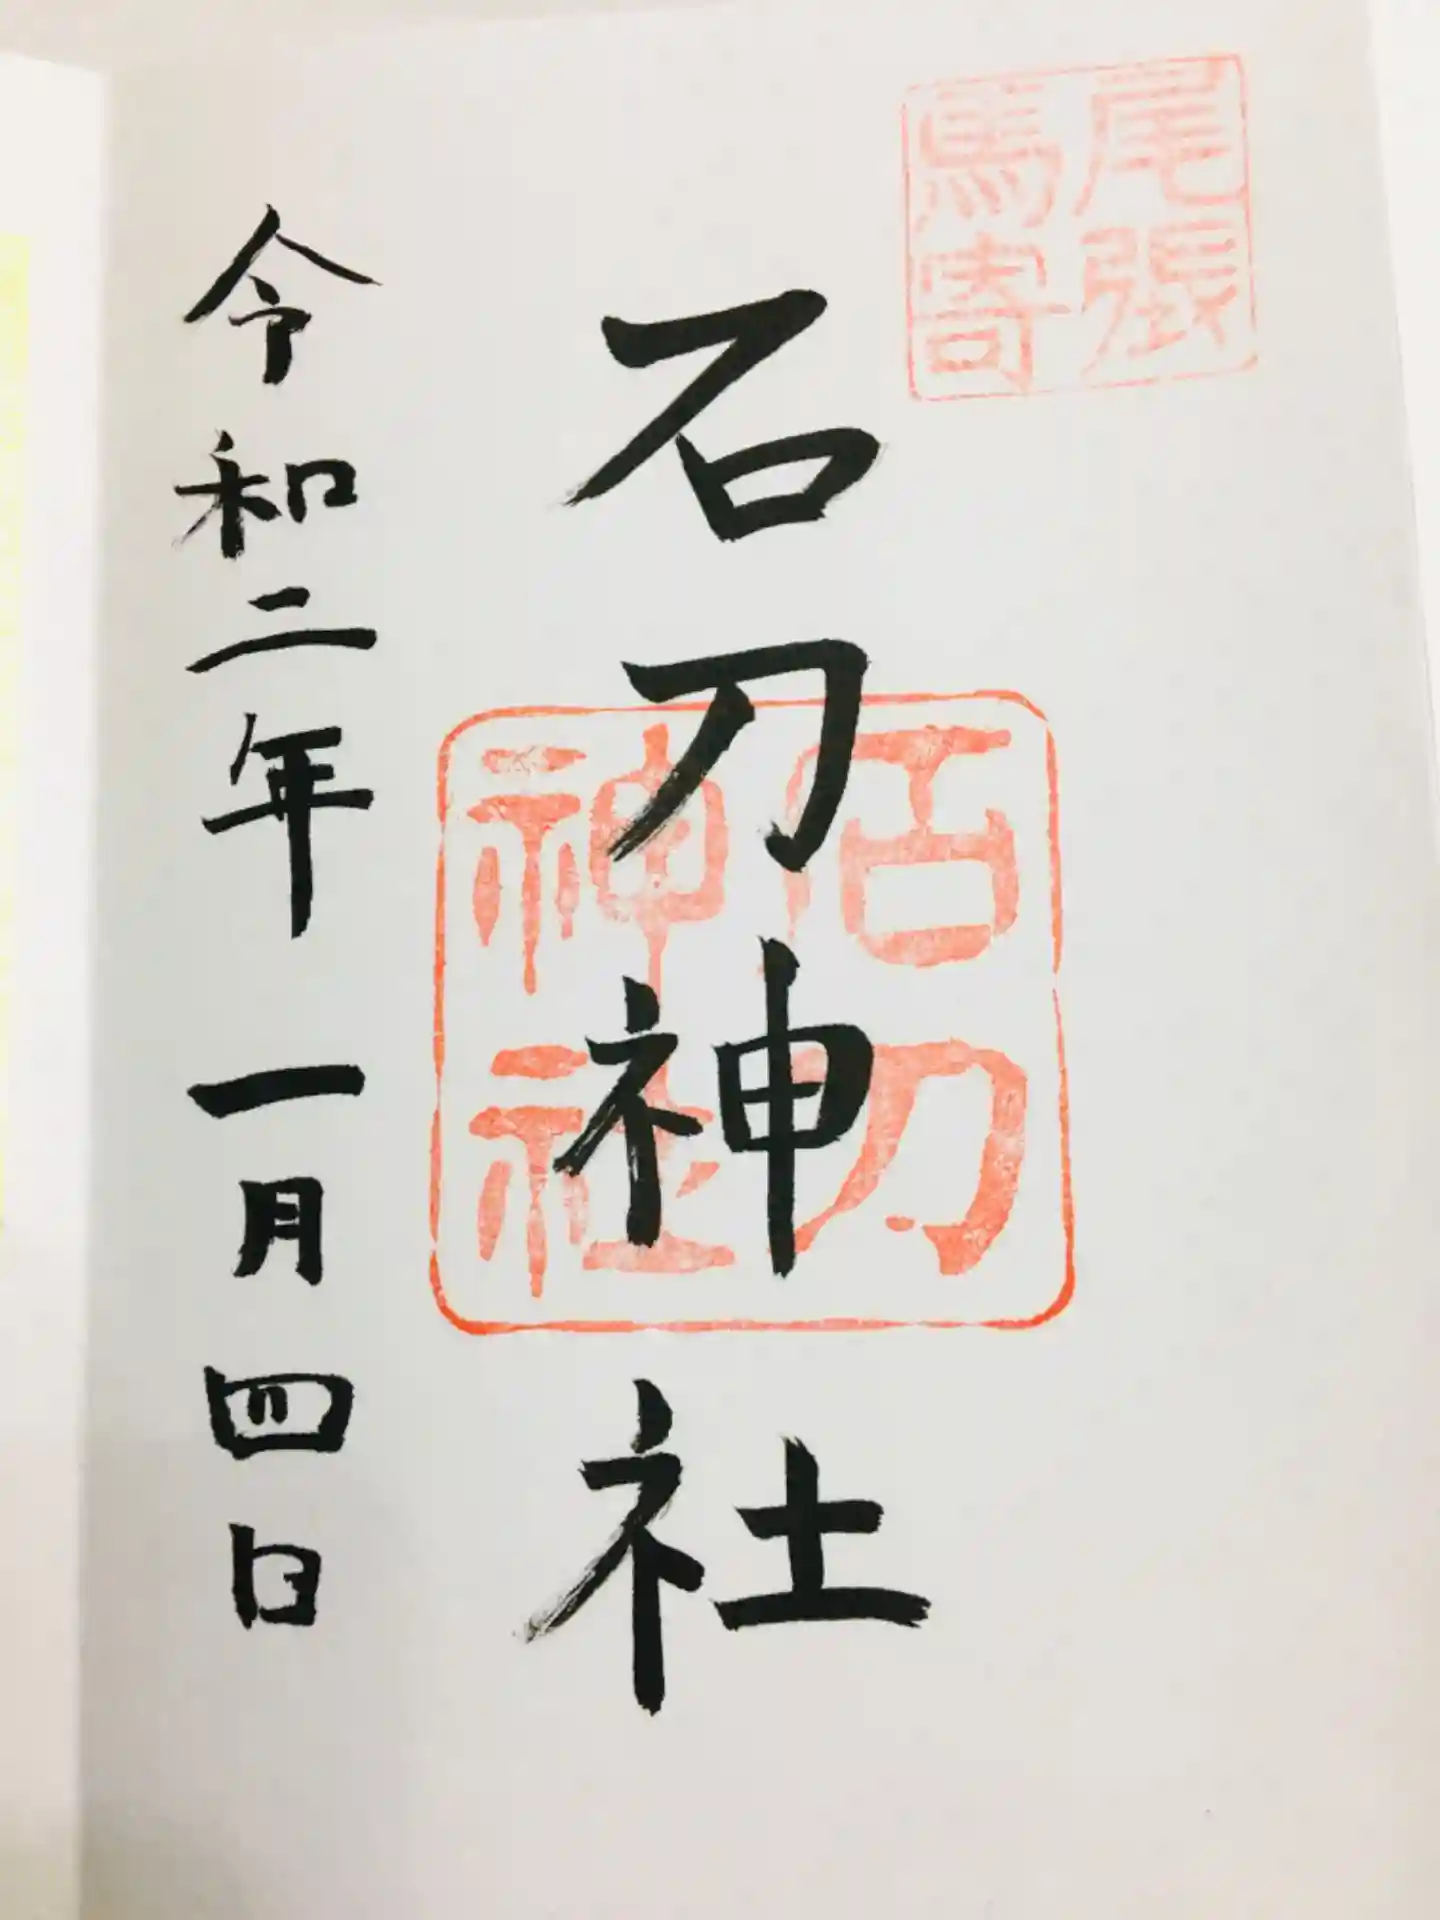 尾張
馬寄
石刀神社
石刀
神社
令和二年一月四日